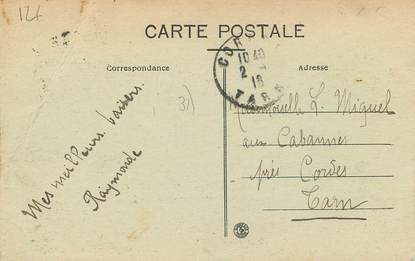 124
CARTE POSTALE
Correspondance
Adresse
COR
10 40
2 -
18
TARN
31)
Mes meilleurs baisers.
Raymonde
Mademoiselle L. Miquel
aux Cabannes
près Cordes
Tarn